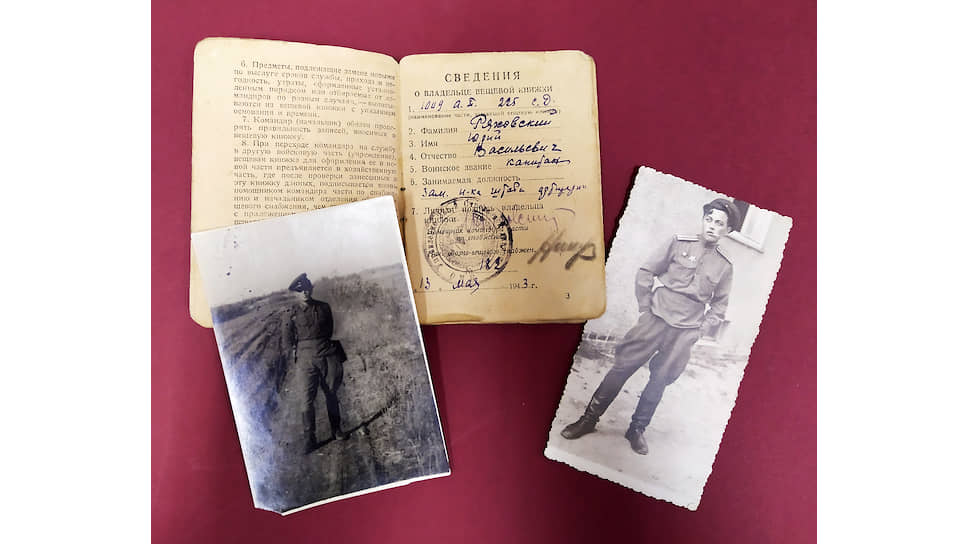 6. Предметы, подлежащие замене новыми
по выслуге сроков службы, прихода в не-
годность, утраты, оформленные установ-
ленным порядком или отбираемые от ко-
мандиров по разным случаям,
ваются из вещевой книжки с указанием
основания и времени.
7. Командир (начальник) обязан прове-
рить правильность записей, вносимых в
вещевую книжку.
8. При переходе командира на службу
в другую войсковую часть (учреждение)
вещевая книжка для оформления ее в но-
вой части предъявляется в хозяйственную
часть, где после проверки занесенных в
эту книжку данных, подписывается
помощником командира части по снабже-
нию и начальником отделения
ного снабжения,
с приложением
СВЕДЕНИЯ
О ВЛАДЕЛЬЦЕ ВЕЩЕВОЙ КНИЖКИ
1. 1009 а.п. 225 с.д.
2. Фамилия Ряховский
3. Имя Юрий
4. Отчество Васильевич
5. Воинское звание капитан
6. Занимаемая должность
Зам. н-ка штаба дивизии
7. Личная подпись владельца
книжки
Помощник командира части
по снабжению
122
13 мая 1943 г.
3